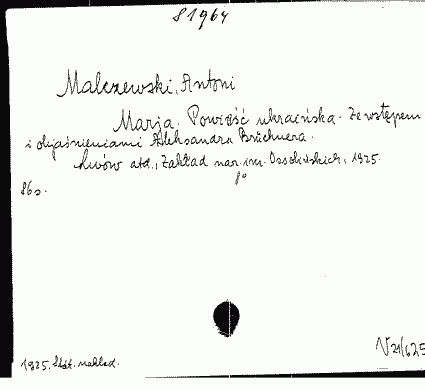 81964
Malczewski, Antoni
Marja. Powieść ukraińska. Ze wstępem
i objaśnieniami Aleksandra Brücknera.
Lwów etc., Zakład nar. im. Ossolińskich, 1925.
8°
86 s.
1925. Stát. náklad.